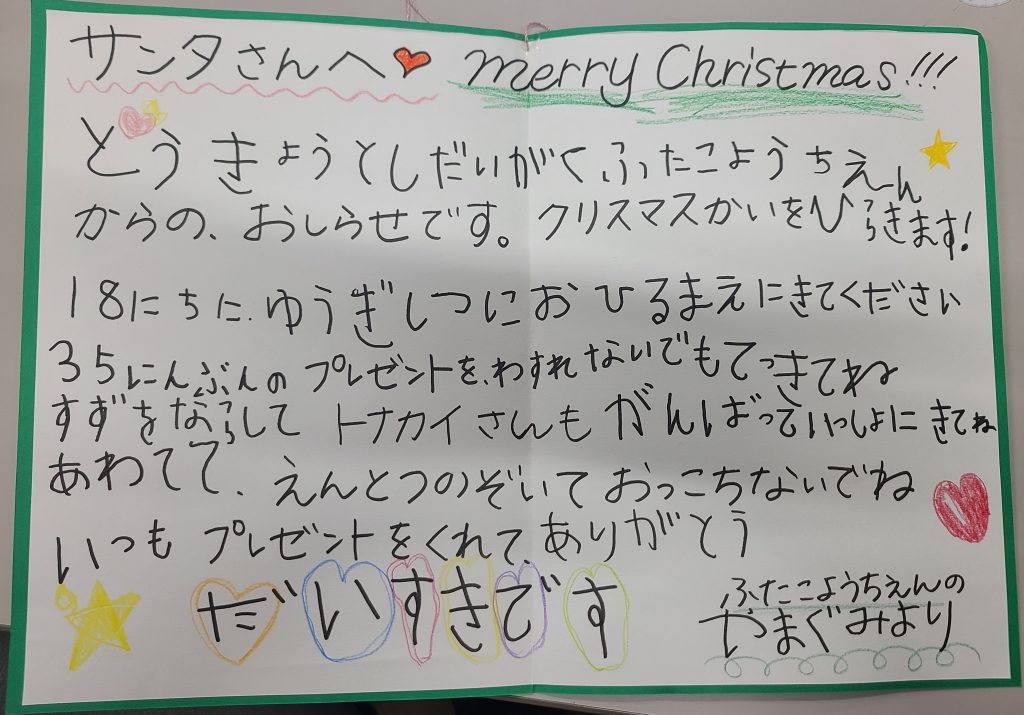 サンタさんへ Merry Christmas!!!
とうきょうとしだいがくふたこようちえーん
からの、おしらせです。クリスマスかいをひらきます!
18にちに、ゆうぎしつにおひるまえにきてください
35にんぶんのプレゼントを、わすれないでもてっきてね
すずをならしてトナカイさんもがんばっていっしょにきてね
あわてて、えんとつのぞいておっこちないでね
いつもプレゼントをくれて、ありがとう
だいすきです
ふたこようちえんの
やまぐみより